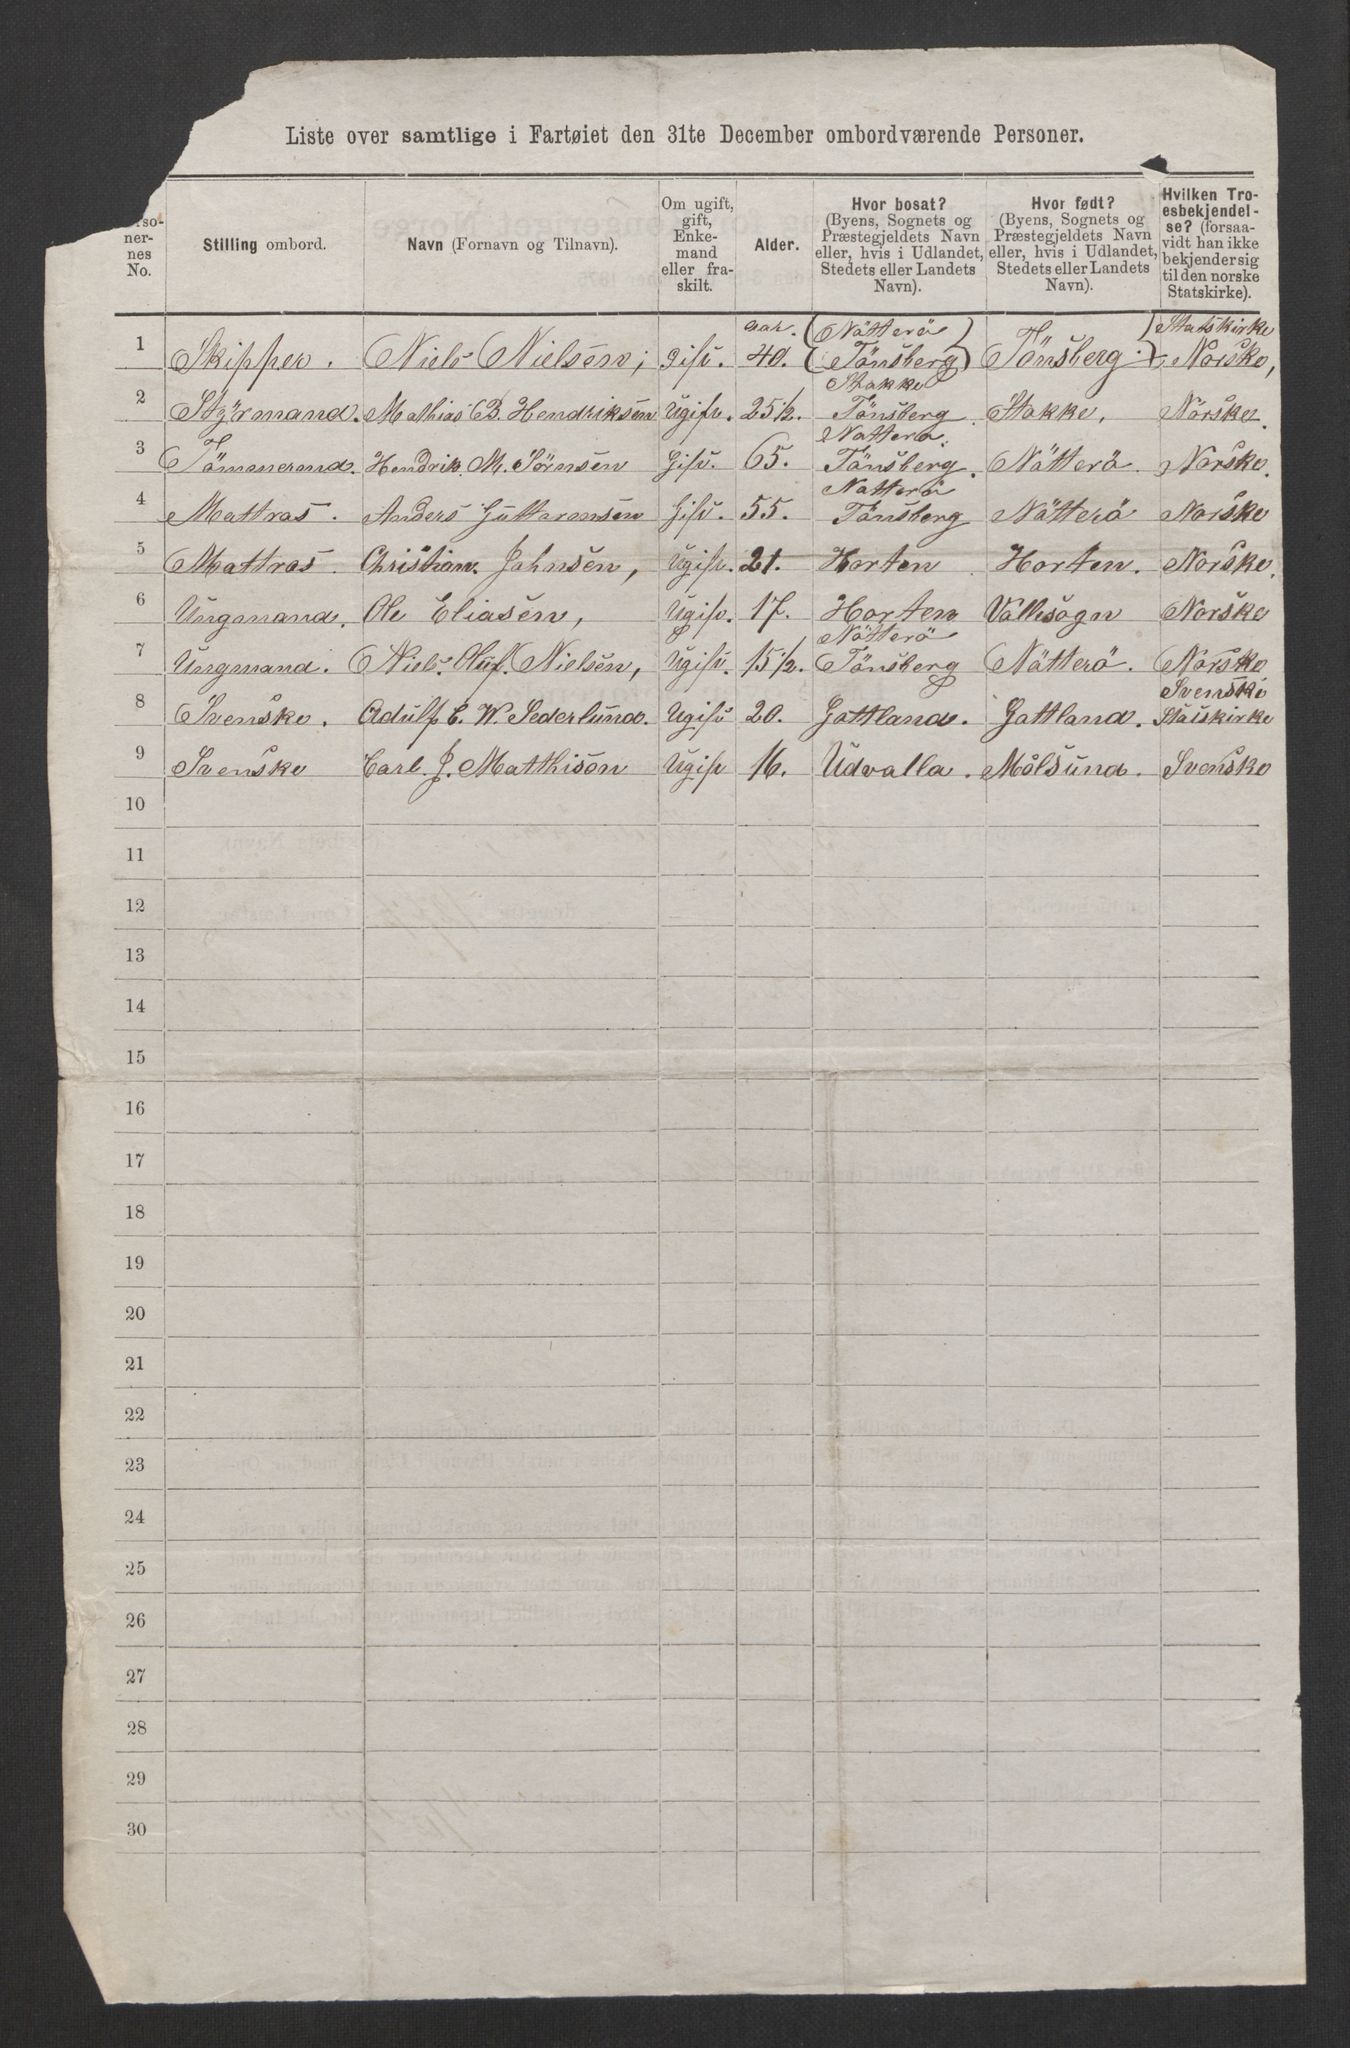 Liste over samtlige i Fartøiet den 31te December ombordværende Personer.
ner-
nes
No.
Stilling ombord.
Navn (Fornavn og Tilnavn).
Om ugift,
gift,
Enke-
mand
eller fra-
skilt.
Alder.
Hvor bosat?
(Byens, Sognets og
Præstegjeldets Navn
eller, hvis i Udlandet,
Stedets eller Landets
Navn).
Hvor født?
(Byens, Sognets og
Præstegjeldets Navn
eller, hvis i Udlandet,
Stedets eller Landets
Navn).
Hvilken Tro-
esbekjendel-
se? (forsaa-
vidt han ikke
bekjender sig
til den norske
Statskirke).
aar. Nötterö Statskirke
1 Skipper. Niels Nielsen, gift. 40. Tönsberg Tönsberg. Norske,
Stokke
2 Styrmand. Mathias B. Hendriksen Ugift. 25 1/2. Tönsberg. Stokke, Norske.
Nötterö.
3 Tömmermd. Hendrik M. Sörensen Gift. 65. Tönsberg. Nötterö. Norske.
Nötterö
4 Mattros. Anders Guttormsen Gift. 55. Tönsberg Nötterö Norske
5 Mattros. Christian. Johnsen, Ugift. 21. Horten. Horten. Norske.
6 Ungmand. Ole Eliasen, Ugift. 17. Horten Vallesogn Norske
Nötterö
7 Ungmand. Niels. Oluf. Nielsen, Ugift. 15 1/2. Tönsberg Nötterö. Norske
Svenske
8 Svenske. Adolf C. W. Sederlund. Ugift 20. Gottland. Gottland. Statskirke
9 Svenske Carl. J. Matthison Ugift 16. Udvalla. Molsund. Svenske
10
11
12
13
14
15
16
17
18
19
20
21
22
23
24
25
26
27
28
29
30